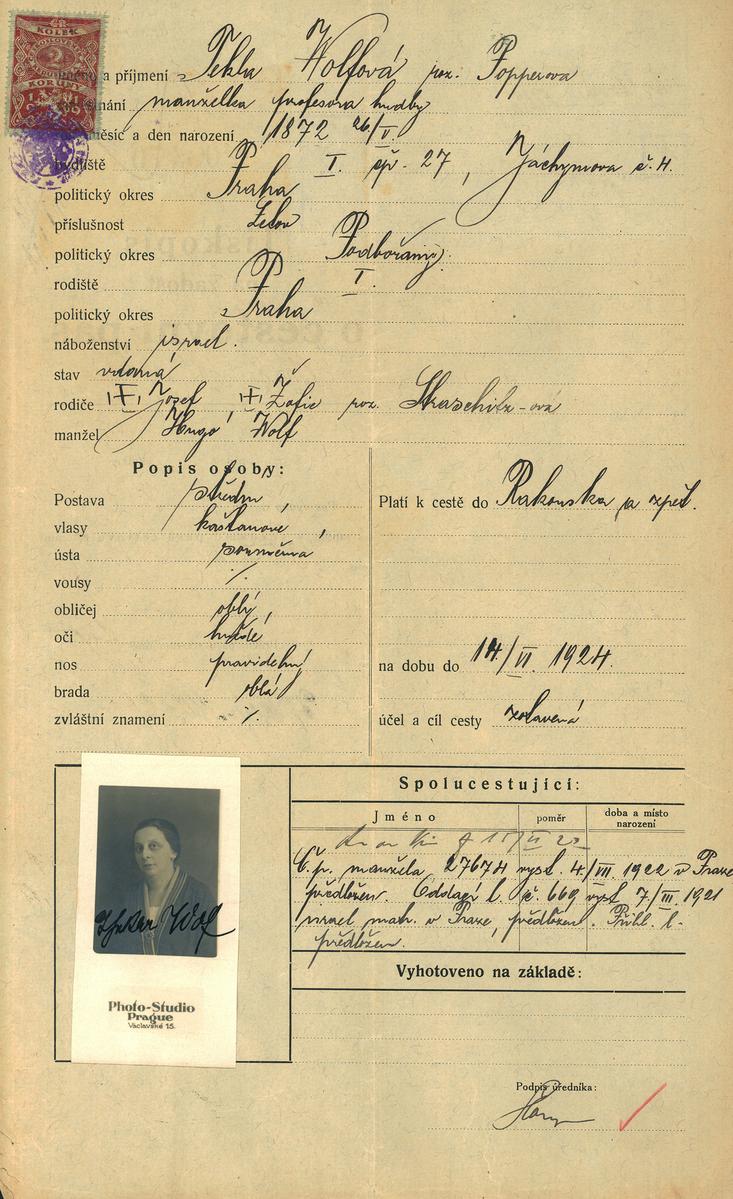 KOLEK
2
KORUNY
a příjmení Tekla Wolfová roz. Popperova
manželka profesora hudby
měsíc a den narození 1872 26/V.
bydliště Praha I. čp. 27, Jáchymova č. 4.
politický okres
příslušnost
politický okres Podbořany
rodiště Praha I.
politický okres
náboženství israel.
stav vdaná
rodiče Josef Žofie roz. Straschitz-ová
manžel Hugo Wolf
Popis osoby:
Postava střední,
vlasy kaštanové,
ústa souměrná
vousy ·/.
obličej oblý,
oči hnědé
nos pravidelný
brada oblá
zvláštní znamení ·/.
Platí k cestě do Rakouska a zpět.
na dobu do 14/VI. 1924.
účel a cíl cesty zotavená
Spolucestující:
Jméno poměr doba a místo narození
C. p. manžela 27674 vyst. 4/VII. 1922 v Praze
předložen. Oddací l. č. 669 vyst 7/III. 1921
israel. mat. v Praze, předložen. Přihl. l.
předložen.
Vyhotoveno na základě:
Wolf
Photo-Studio
Prague
Václavské 15.
Podpis úředníka: